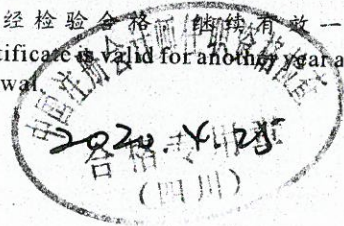 经检验合格，继续有效一
tificate is valid for another year a
wal.
中国注册会计师任职资格检查
2020.4.25
合格专用章
（四川）